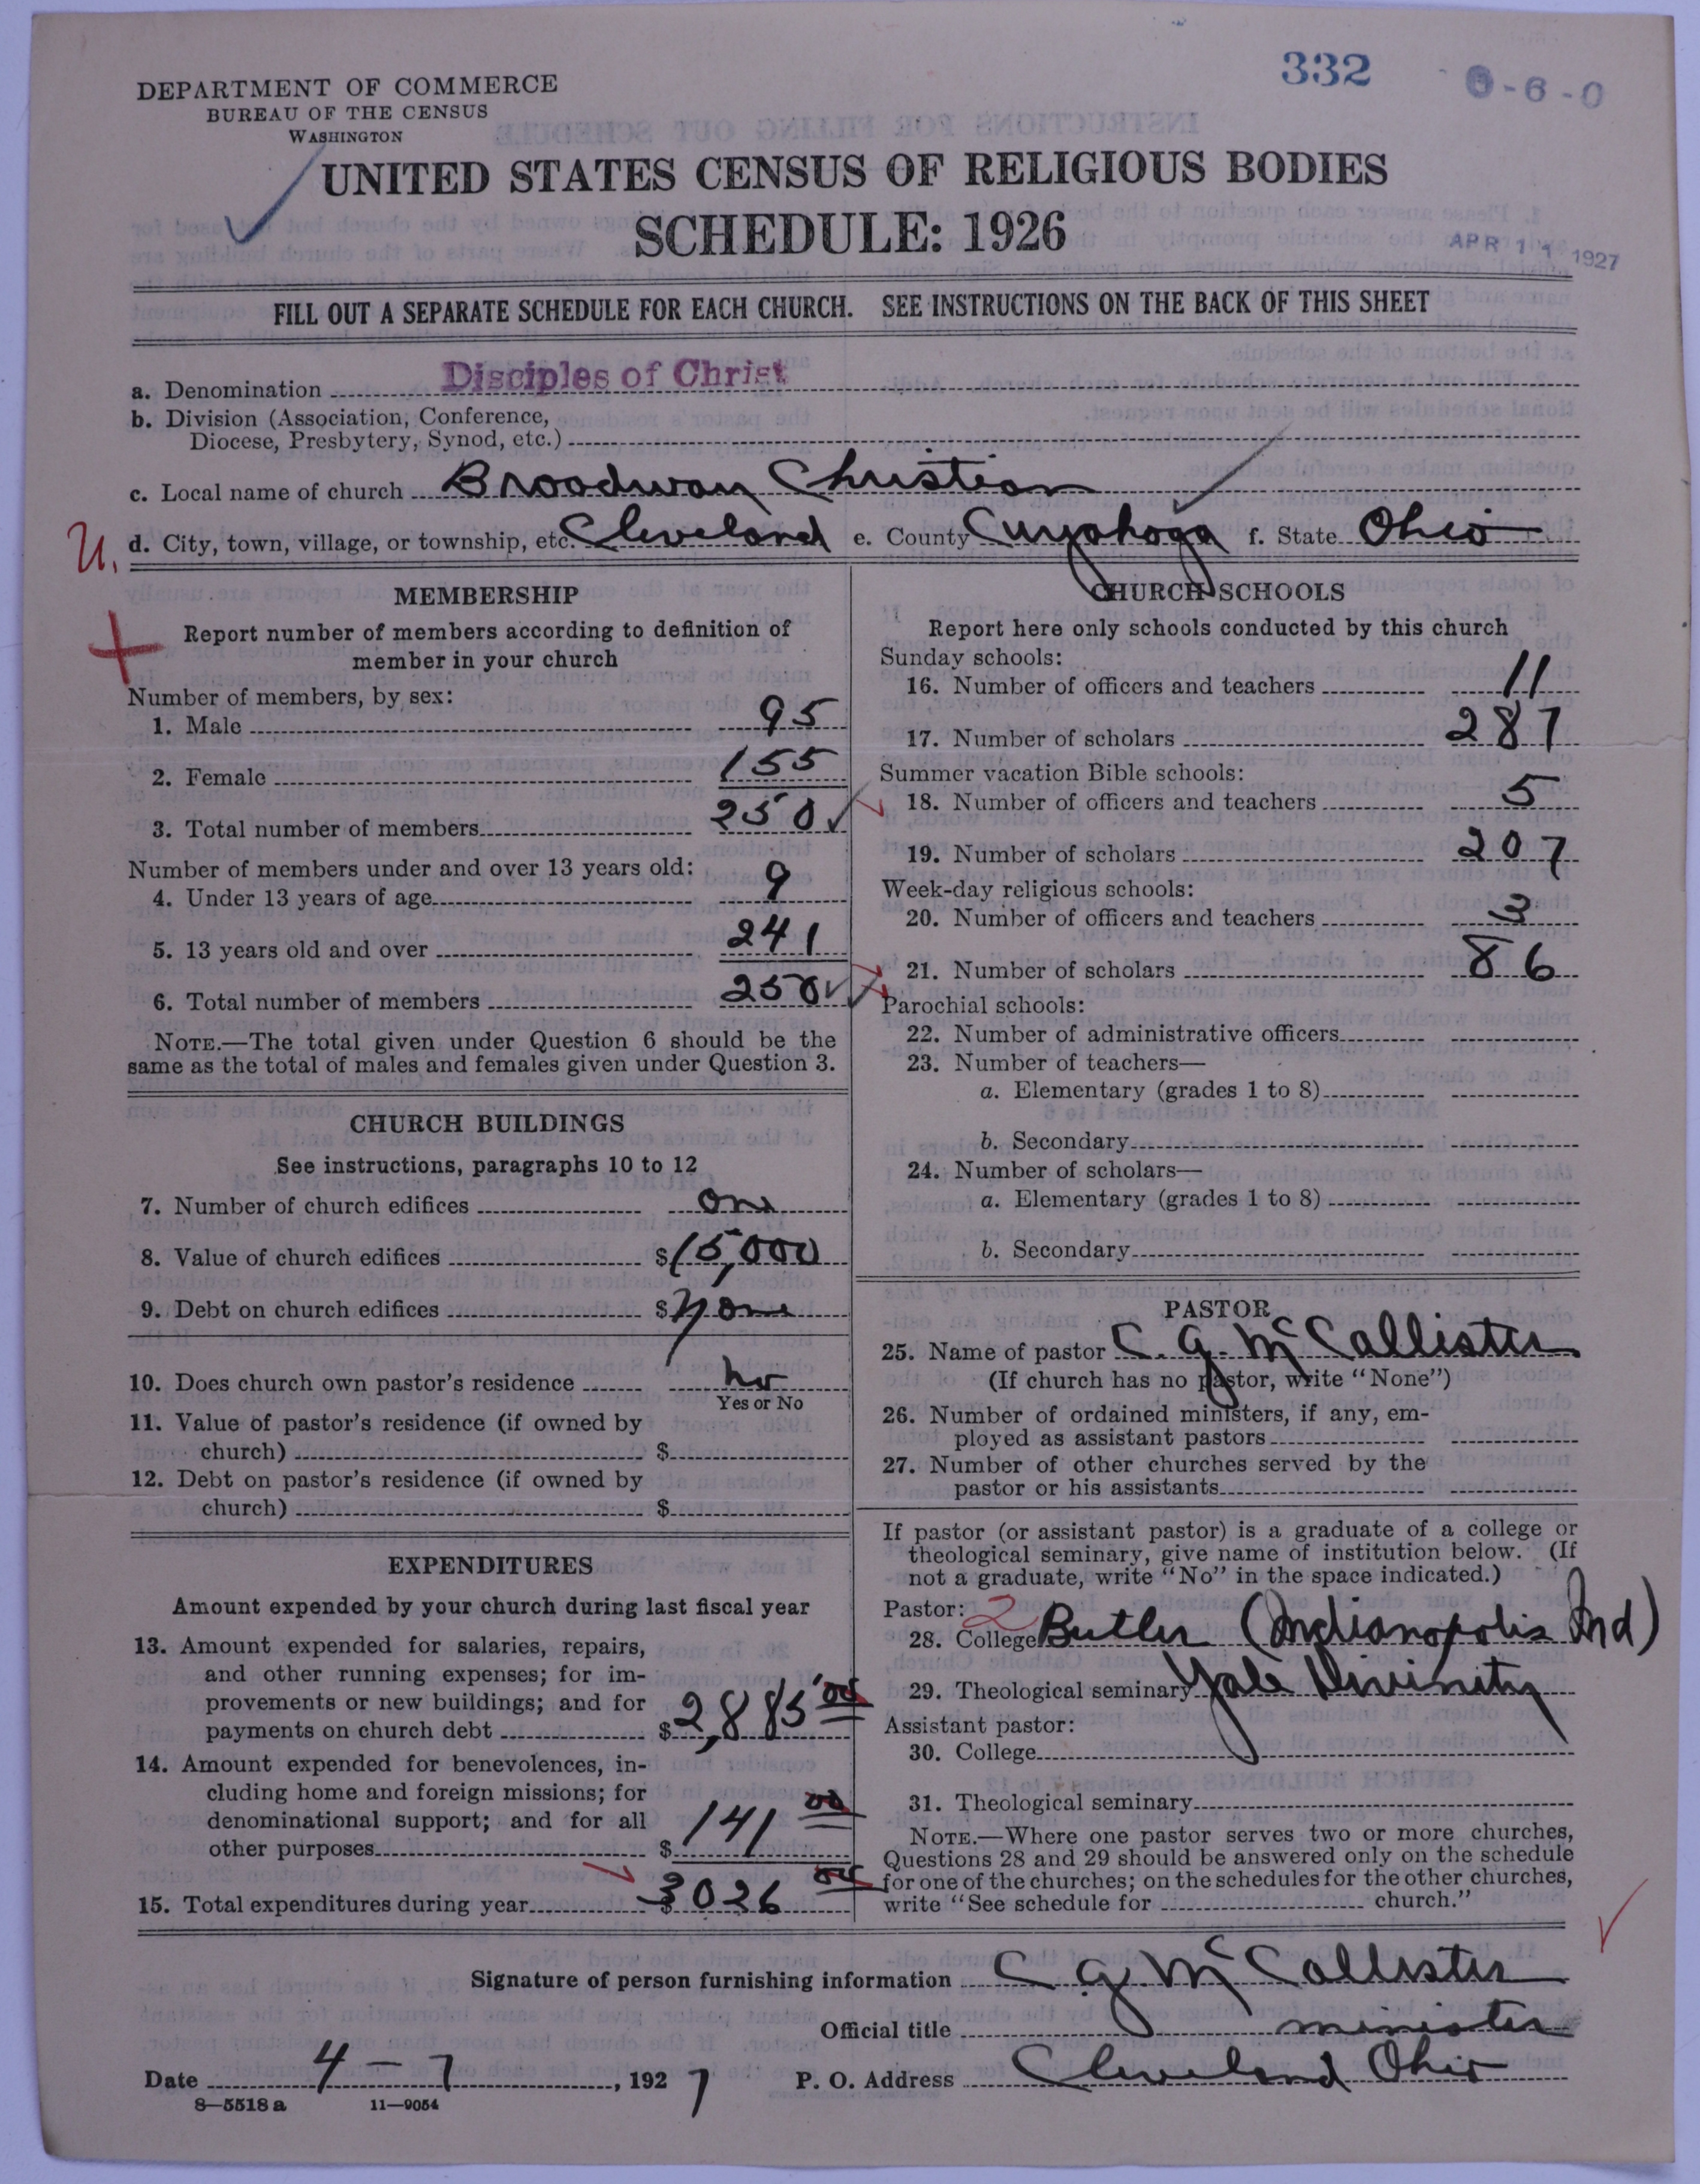 332
6-0
DEPARTMENT OF COMMERCE
BUREAU OF THE CENSUS
WASHINGTON
UNITED STATES CENSUS OF RELIGIOUS BODIES
SCHEDULE: 1926
APR 11 1927
FILL OUT A SEPARATE SCHEDULE FOR EACH CHURCH. SEE INSTRUCTIONS ON THE BACK OF THIS SHEET
a. Denomination Disciples of Christ
b. Division (Association, Conference,
Diocese, Presbytery, Synod, etc.)
c. Local name of church Broadway Christian
U. d. City, town, village, or township, etc. Cleveland e. County Cuyahoga f. State Ohio
MEMBERSHIP
Report number of members according to definition of
member in your church
Number of members, by sex:
1. Male 95
2. Female 155
3. Total number of members 250
Number of members under and over 13 years old:
4. Under 13 years of age 9
5. 13 years old and over 241
6. Total number of members 250
NOTE.—The total given under Question 6 should be the
same as the total of males and females given under Question 3.
CHURCH BUILDINGS
See instructions, paragraphs 10 to 12
7. Number of church edifices one
8. Value of church edifices $15,000
9. Debt on church edifices $None
10. Does church own pastor's residence No
Yes or No
11. Value of pastor's residence (if owned by
church) $
12. Debt on pastor's residence (if owned by
church) $
EXPENDITURES
Amount expended by your church during last fiscal year
13. Amount expended for salaries, repairs,
and other running expenses; for im-
provements or new buildings; and for
payments on church debt $2,885 00
14. Amount expended for benevolences, in-
cluding home and foreign missions; for
denominational support; and for all
other purposes $141 00
15. Total expenditures during year $3026 00
CHURCH SCHOOLS
Report here only schools conducted by this church
Sunday schools:
16. Number of officers and teachers 11
17. Number of scholars 287
Summer vacation Bible schools:
18. Number of officers and teachers 5
19. Number of scholars 207
Week-day religious schools:
20. Number of officers and teachers 3
21. Number of scholars 86
Parochial schools:
22. Number of administrative officers
23. Number of teachers—
a. Elementary (grades 1 to 8)
b. Secondary
24. Number of scholars—
a. Elementary (grades 1 to 8)
b. Secondary
PASTOR
25. Name of pastor C. G. McCallister
(If church has no pastor, write "None")
26. Number of ordained ministers, if any, em-
ployed as assistant pastors
27. Number of other churches served by the
pastor or his assistants
If pastor (or assistant pastor) is a graduate of a college or
theological seminary, give name of institution below. (If
not a graduate, write "No" in the space indicated.)
Pastor: 2
28. College Butler (Indianapolis Ind)
29. Theological seminary Yale Divinity
Assistant pastor:
30. College
31. Theological seminary
NOTE.—Where one pastor serves two or more churches,
Questions 28 and 29 should be answered only on the schedule
for one of the churches; on the schedules for the other churches,
write "See schedule for church."
Signature of person furnishing information C G McCallister
Official title minister
Date 4-7, 1927 P. O. Address Cleveland Ohio
8—5518 a 11—9054